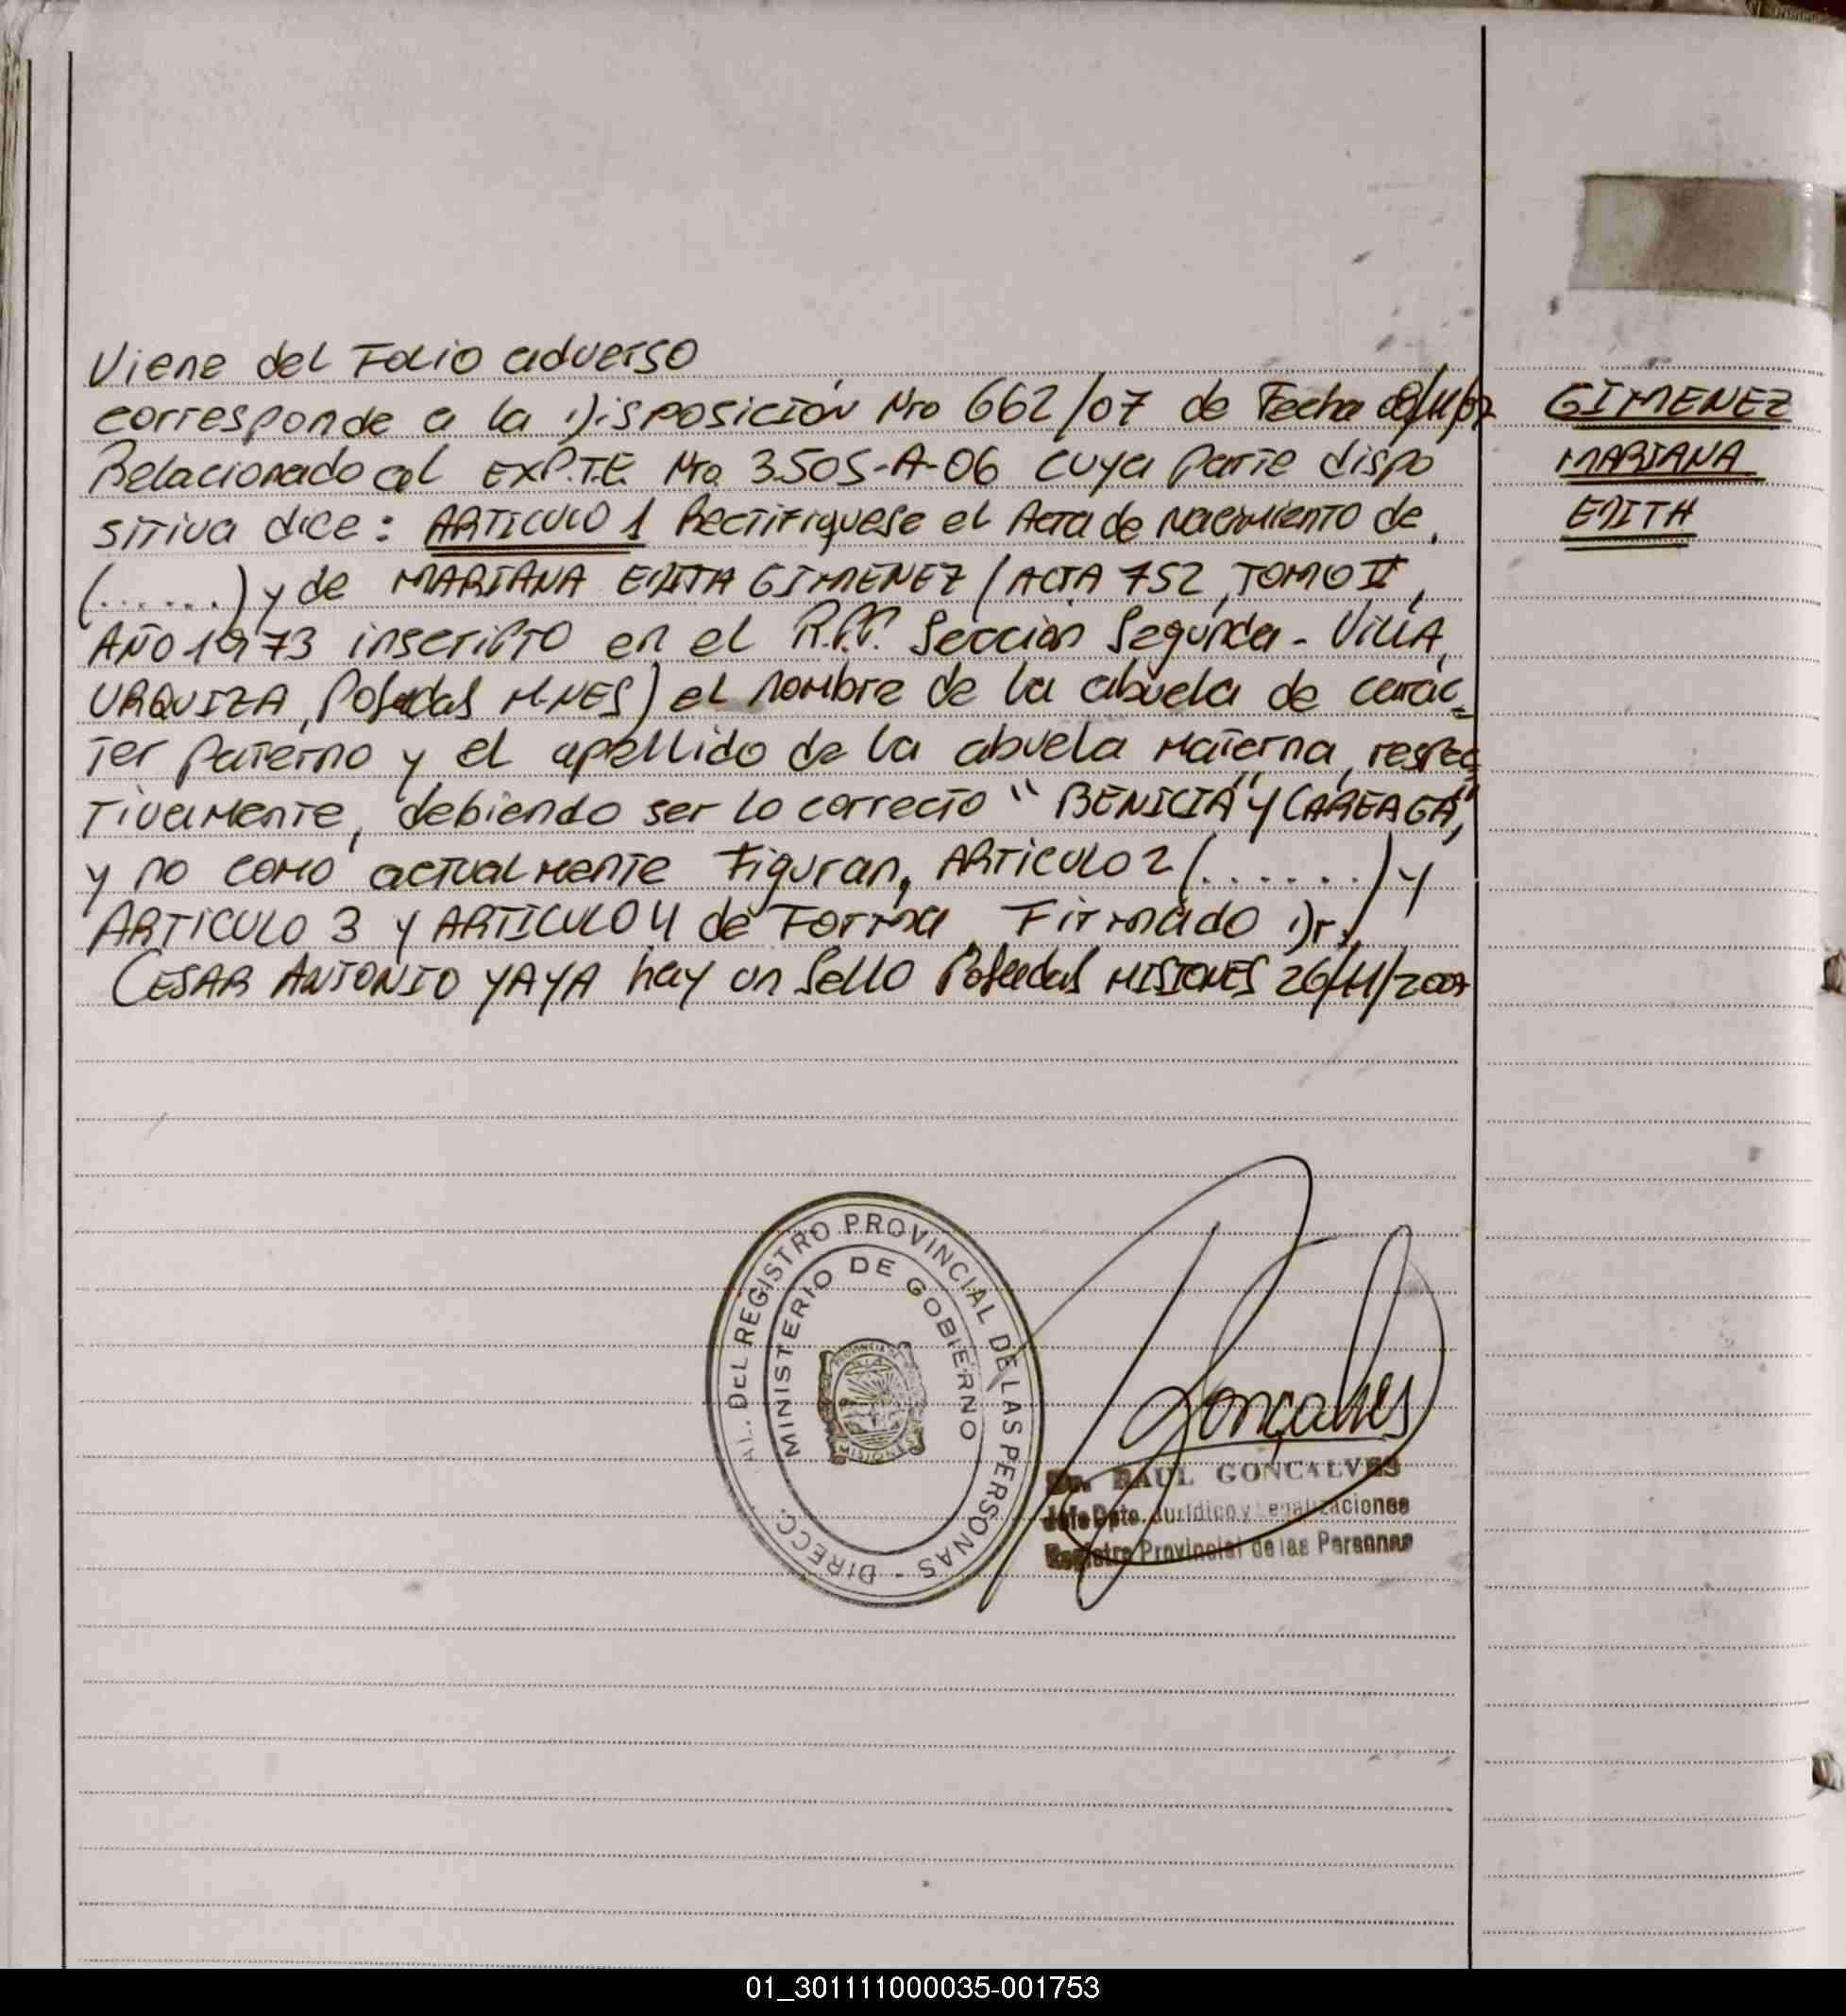 Viene del Folio adverso
corresponde a la Disposición Nro 662/07 de Fecha
Relacionado al EXP.T.E. Nro. 3505-A-06 cuya parte dispo
sitiva dice: ARTICULO 1 Rectifiquese el Acta de Nacimiento de,
(......) y de MARIANA EDITH GIMENEZ (ACTA 752, TOMO II,
AÑO 1973 inscripto en el R.P.P. Seccion Segunda - VILLA,
URQUIZA, Posadas MNES) el nombre de la abuela de carác-
ter paterno y el apellido de la abuela materna, respec
tivamente, debiendo ser lo correcto "BENICIA" y CAREAGA",
y no como actualmente Figuran, ARTICULO 2 (.......) y
ARTICULO 3 y ARTICULO 4 de Forma. Firmado Dr.
CESAR ANTONIO YAYA hay un Sello Posadas MISIONES 26/11/2007
GIMENEZ
MARIANA
EDITH
AL. DEL REGISTRO PROVINCIAL DE LAS PERSONAS - DIRECC.
MINISTERIO DE GOBIERNO
PROVINCIA DE
MISIONES
Gonçalves
Dr. RAUL GONÇALVES
Jefe Dpto. Jurídico y Legalizaciones
Registro Provincial de las Personas
01_301111000035-001753